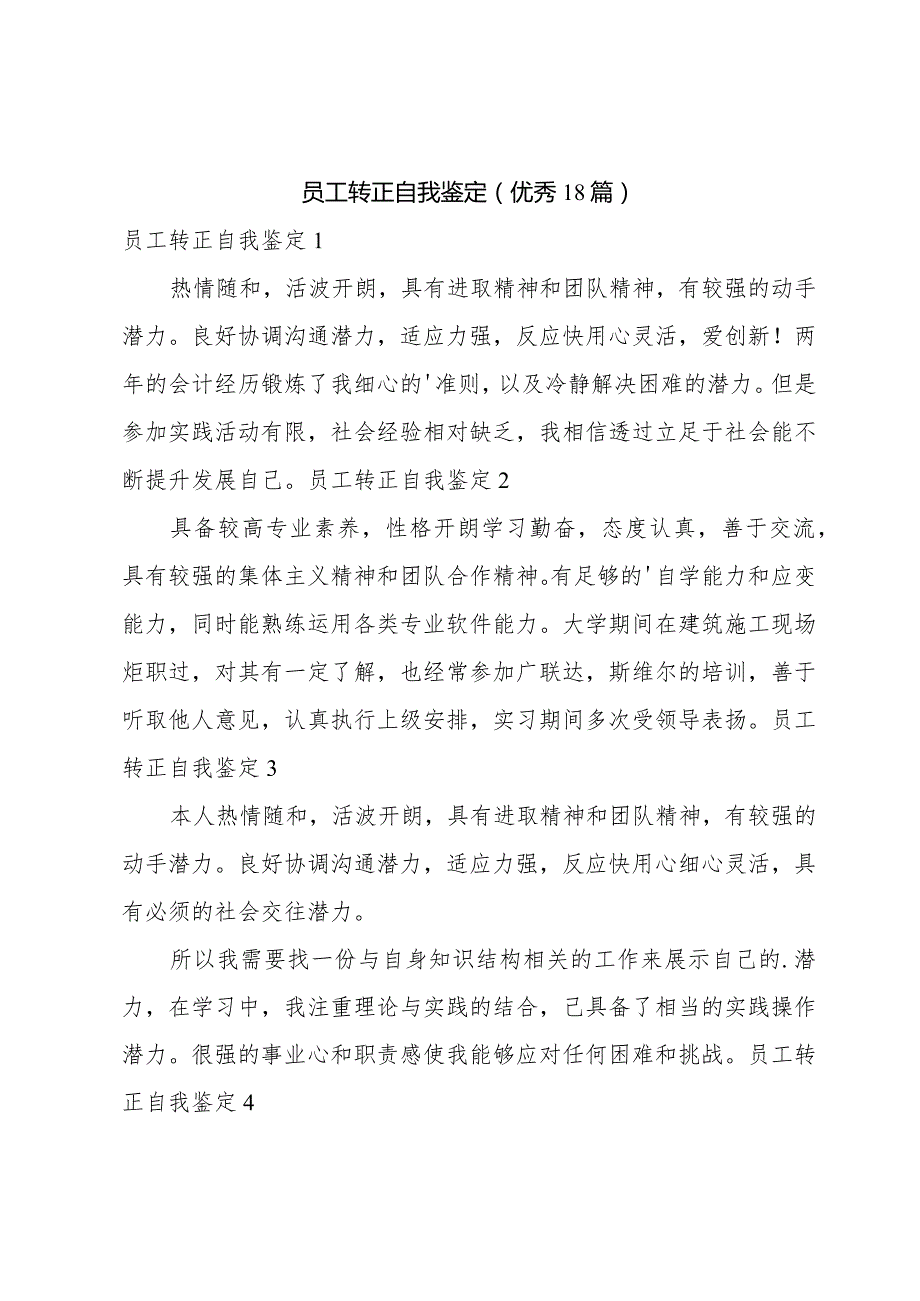 员工转正自我鉴定（优秀18篇）
员工转正自我鉴定1
热情随和，活波开朗，具有进取精神和团队精神，有较强的动手
潜力。良好协调沟通潜力，适应力强，反应快用心灵活，爱创新！两
年的会计经历锻炼了我细心的'准则，以及冷静解决困难的潜力。但是
参加实践活动有限，社会经验相对缺乏，我相信透过立足于社会能不
断提升发展自己。员工转正自我鉴定2
具备较高专业素养，性格开朗学习勤奋，态度认真，善于交流，
具有较强的集体主义精神和团队合作精神。有足够的'自学能力和应变
能力，同时能熟练运用各类专业软件能力。大学期间在建筑施工现场
炬职过，对其有一定了解，也经常参加广联达，斯维尔的培训，善于
听取他人意见，认真执行上级安排，实习期间多次受领导表扬。员工
转正自我鉴定3
本人热情随和，活波开朗，具有进取精神和团队精神，有较强的
动手潜力。良好协调沟通潜力，适应力强，反应快用心细心灵活，具
有必须的社会交往潜力。
所以我需要找一份与自身知识结构相关的工作来展示自己的.潜
力，在学习中，我注重理论与实践的结合，己具备了相当的实践操作
潜力。很强的事业心和职责感使我能够应对任何困难和挑战。员工转
正自我鉴定4